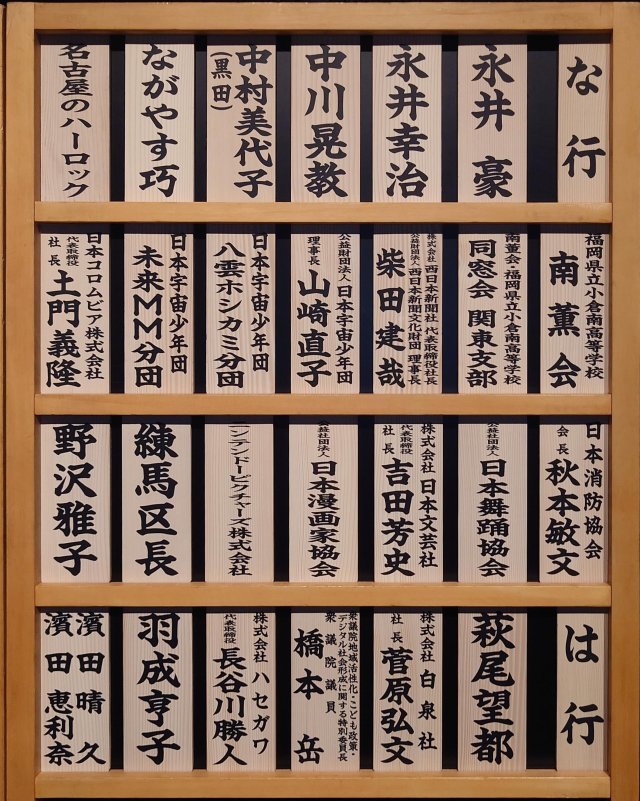 な行
永井 豪
永井幸治
中川晃教
中村美代子
(黒田)
ながやす巧
名古屋のハーロック
福岡県立小倉南高等学校
南薫会
南薫会・福岡県立小倉南高等学校
同窓会 関東支部
株式会社 西日本新聞社 代表取締役社長
公益財団法人 西日本新聞文化財団 理事長
柴田建哉
公益財団法人 日本宇宙少年団
理事長 山崎直子
日本宇宙少年団
八雲ホシカミ分団
日本宇宙少年団
未来MM分団
日本コロムビア株式会社
代表取締役
社長 土門義隆
日本消防協会
会長 秋本敏文
公益社団法人
日本舞踊協会
株式会社 日本文芸社
代表取締役
社長 吉田芳史
公益社団法人
日本漫画家協会
ニンテンドーピクチャーズ株式会社
練馬区長
野沢雅子
は行
萩尾望都
株式会社 白泉社
社長 菅原弘文
衆議院地域活性化・こども政策・
デジタル社会形成に関する特別委員長
衆議院議員
橋本 岳
株式会社 ハセガワ
代表取締役
長谷川勝人
羽成亨子
濱田晴久
濱田恵利奈